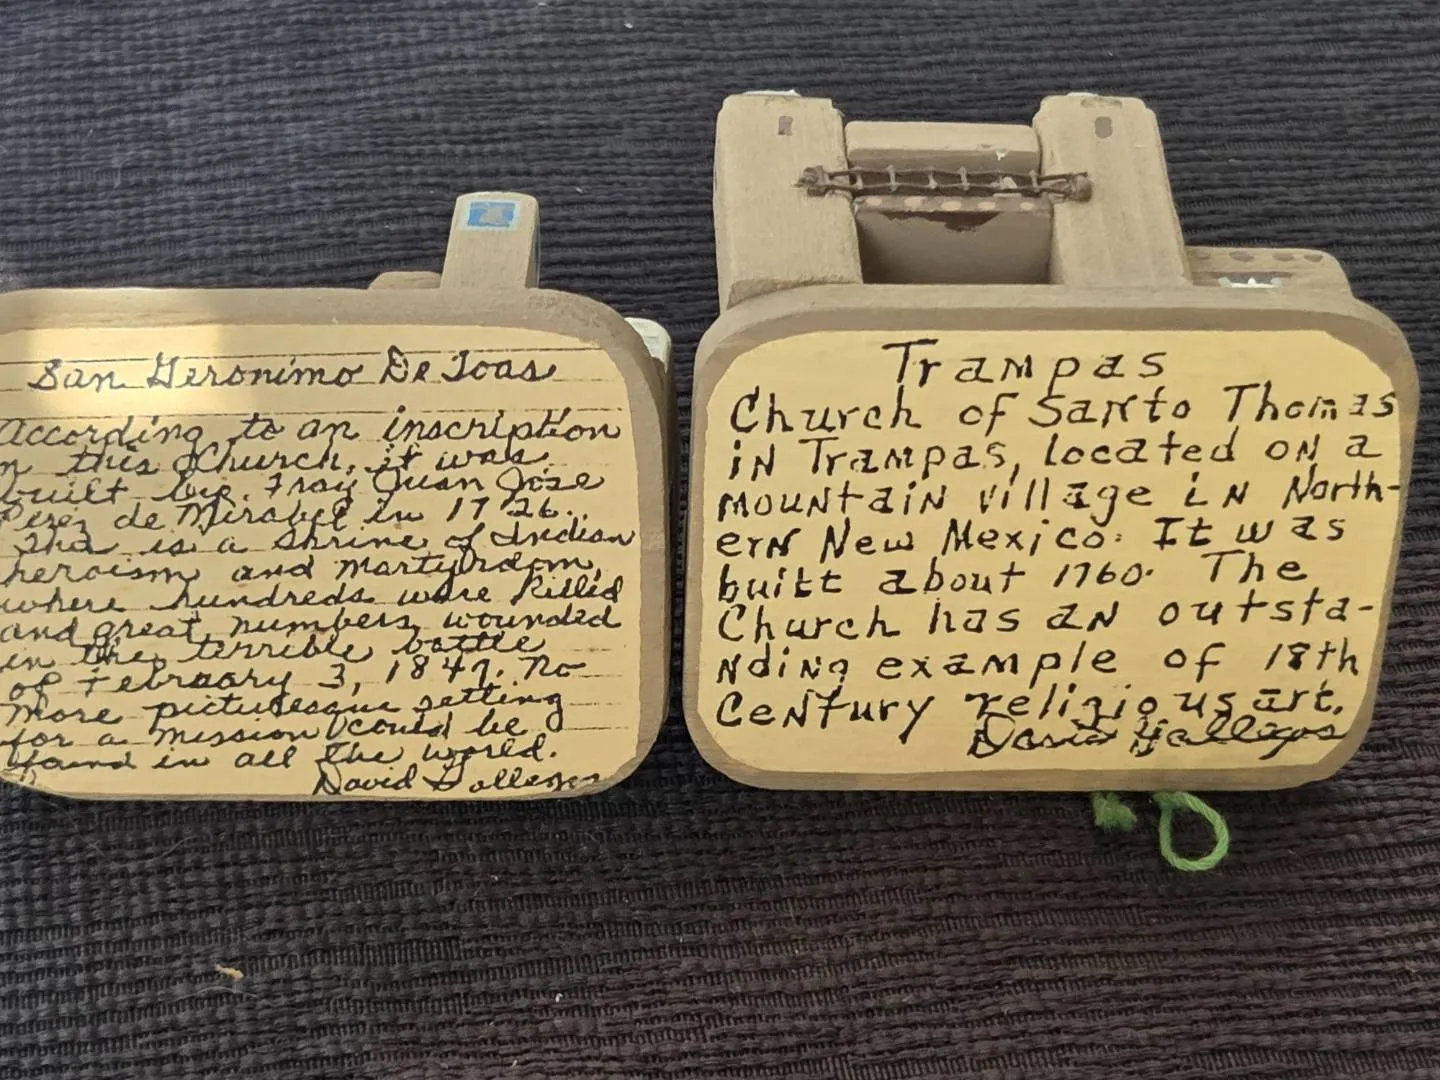 San Geronimo De Toas
According to an inscription
n this Church, it was
built by. Fray Juan Jose
Perez de Mirabel in 1726.
This is a shrine of Indian
heroism and martyrdom,
where hundreds were killed
and great numbers wounded
in the terrible battle
of February 3, 1847. No
more picturesque setting
for a mission could be
found in all the world.
David Gallegos
Trampas
Church of Santo Thomas
in Trampas, located on a
mountain village in North-
ern New Mexico. It was
built about 1760. The
Church has an outsta-
nding example of 18th
Century religious art.
David Gallegos